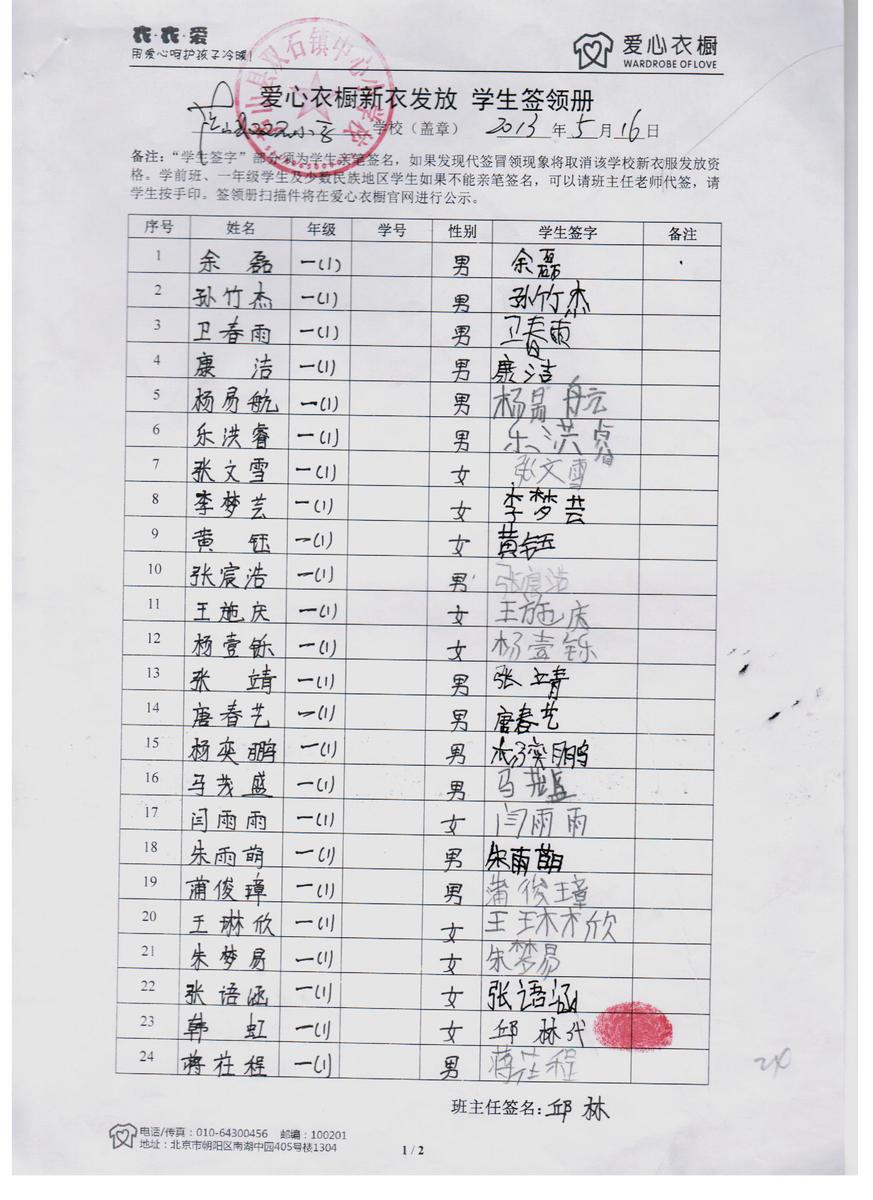 衣·衣·爱
用爱心呵护孩子冷暖!
爱心衣橱
WARDROBE OF LOVE
县双石镇中心小学校
爱心衣橱新衣发放 学生签领册
学校（盖章） 2013 年 5 月 16 日
备注：“学生签字”部分须为学生亲笔签名，如果发现代签冒领现象将取消该学校新衣服发放资
格。学前班、一年级学生及少数民族地区学生如果不能亲笔签名，可以请班主任老师代签，请
学生按手印。签领册扫描件将在爱心衣橱官网进行公示。
序号 姓名 年级 学号 性别 学生签字 备注
1 余磊 一(1) 男 余磊
2 孙竹杰 一(1) 男 孙竹杰
3 卫春雨 一(1) 男 卫春雨
4 康洁 一(1) 男 康洁
5 杨易航 一(1) 男 杨易航
6 乐洪睿 一(1) 男 乐洪睿
7 张文雪 一(1) 女 张文雪
8 李梦芸 一(1) 女 李梦芸
9 黄钰 一(1) 女 黄钰
10 张宸浩 一(1) 男 张宸浩
11 王施庆 一(1) 女 王施庆
12 杨壹铄 一(1) 女 杨壹铄
13 张靖 一(1) 男 张靖
14 唐春艺 一(1) 男 唐春艺
15 杨奕鹏 一(1) 男 杨奕鹏
16 马茂盛 一(1) 男 马茂盛
17 闫雨雨 一(1) 女 闫雨雨
18 朱雨萌 一(1) 男 朱雨萌
19 蒲俊璋 一(1) 男 蒲俊璋
20 王琳欣 一(1) 女 王琳欣
21 朱梦易 一(1) 女 朱梦易
22 张语涵 一(1) 女 张语涵
23 韩虹 一(1) 女 邱林代
24 蒋荏程 一(1) 男 蒋荏程
24
班主任签名：邱林
电话/传真：010-64300456 邮编：100201
地址：北京市朝阳区南湖中园405号楼1304
1 / 2